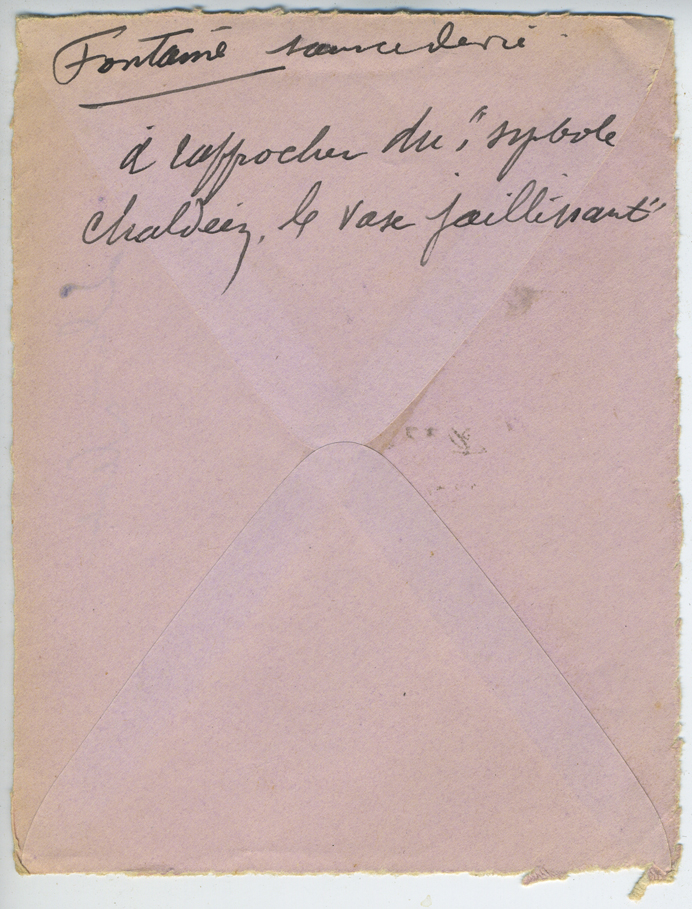 Fontaine source de vie.
à rapprocher du "sybole
chaldéen, le vase jaillissant"